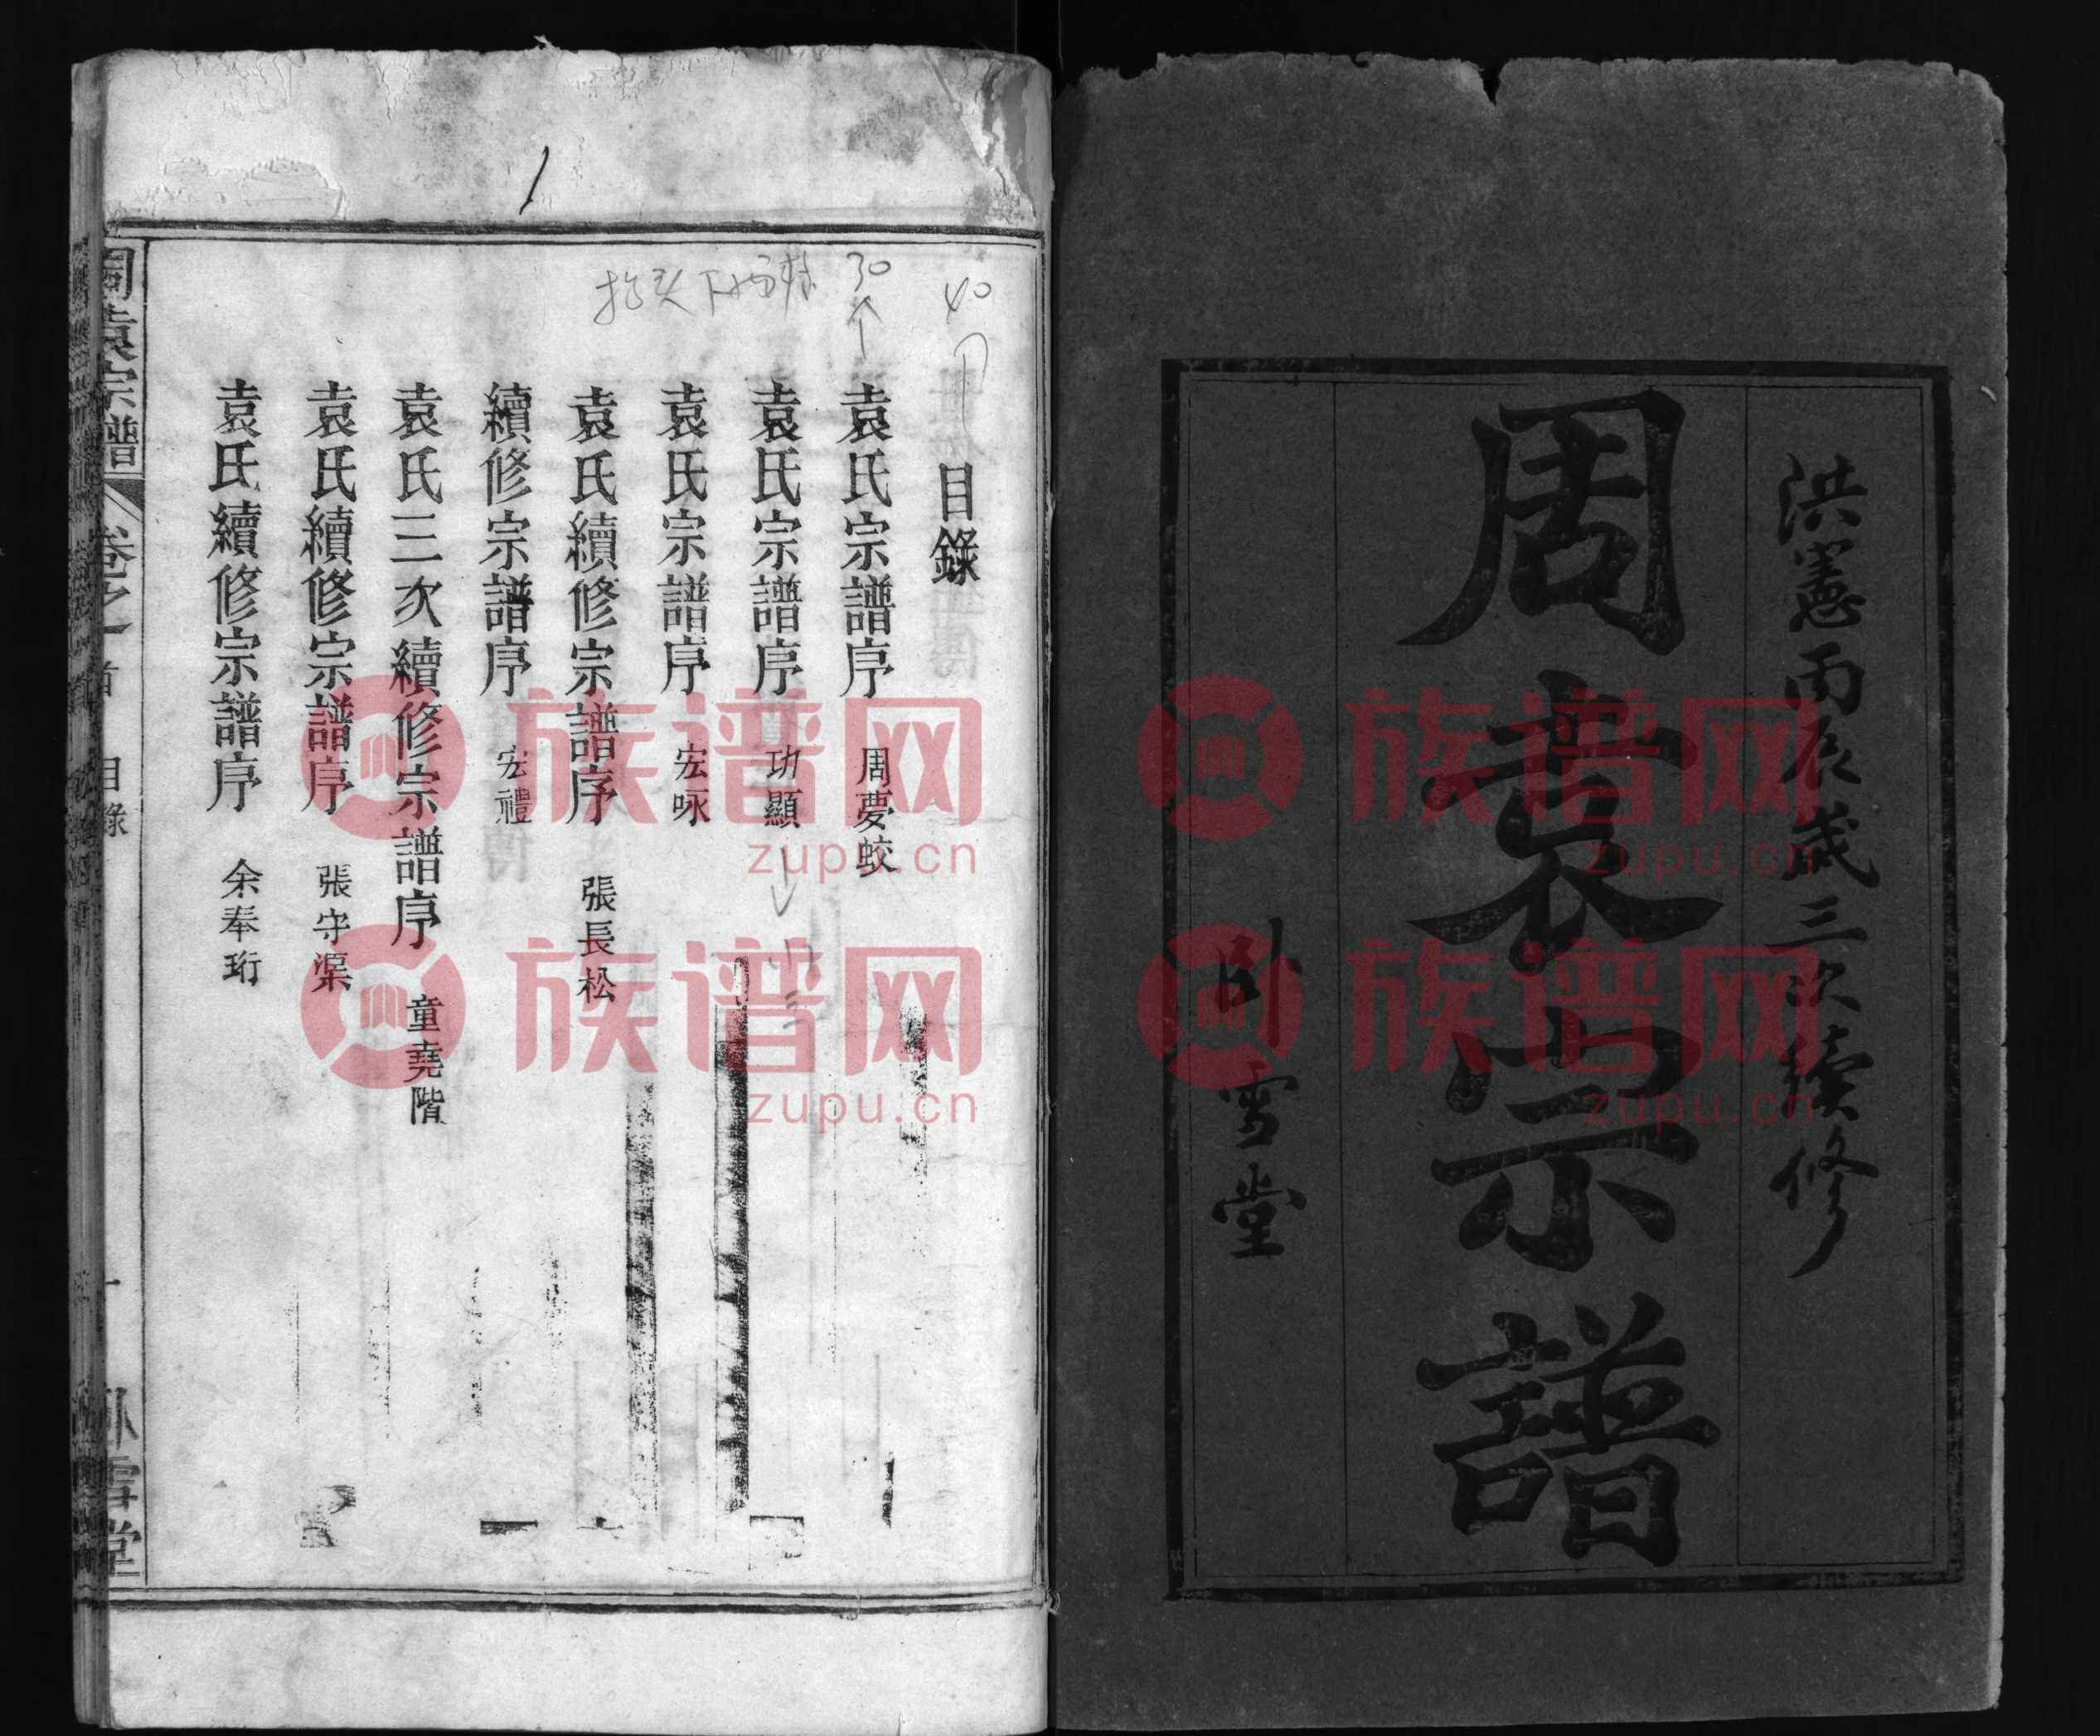 洪憲丙辰歲三次續修
周袁宗譜
卧雪堂
目錄
袁氏宗譜序 周夢蛟
袁氏宗譜序 功顯
袁氏宗譜序 宏咏
袁氏續修宗譜序 張長松
續修宗譜序 宏禮
袁氏三次續修宗譜序 童堯階
袁氏續修宗譜序 張守渠
袁氏續修宗譜序 余奉珩
周袁宗譜 卷之一 首 目錄 一 卧雪堂
40
30
1
族谱网
zupu.cn
族谱网
zupu.cn
族谱网
zupu.cn
族谱网
zupu.cn